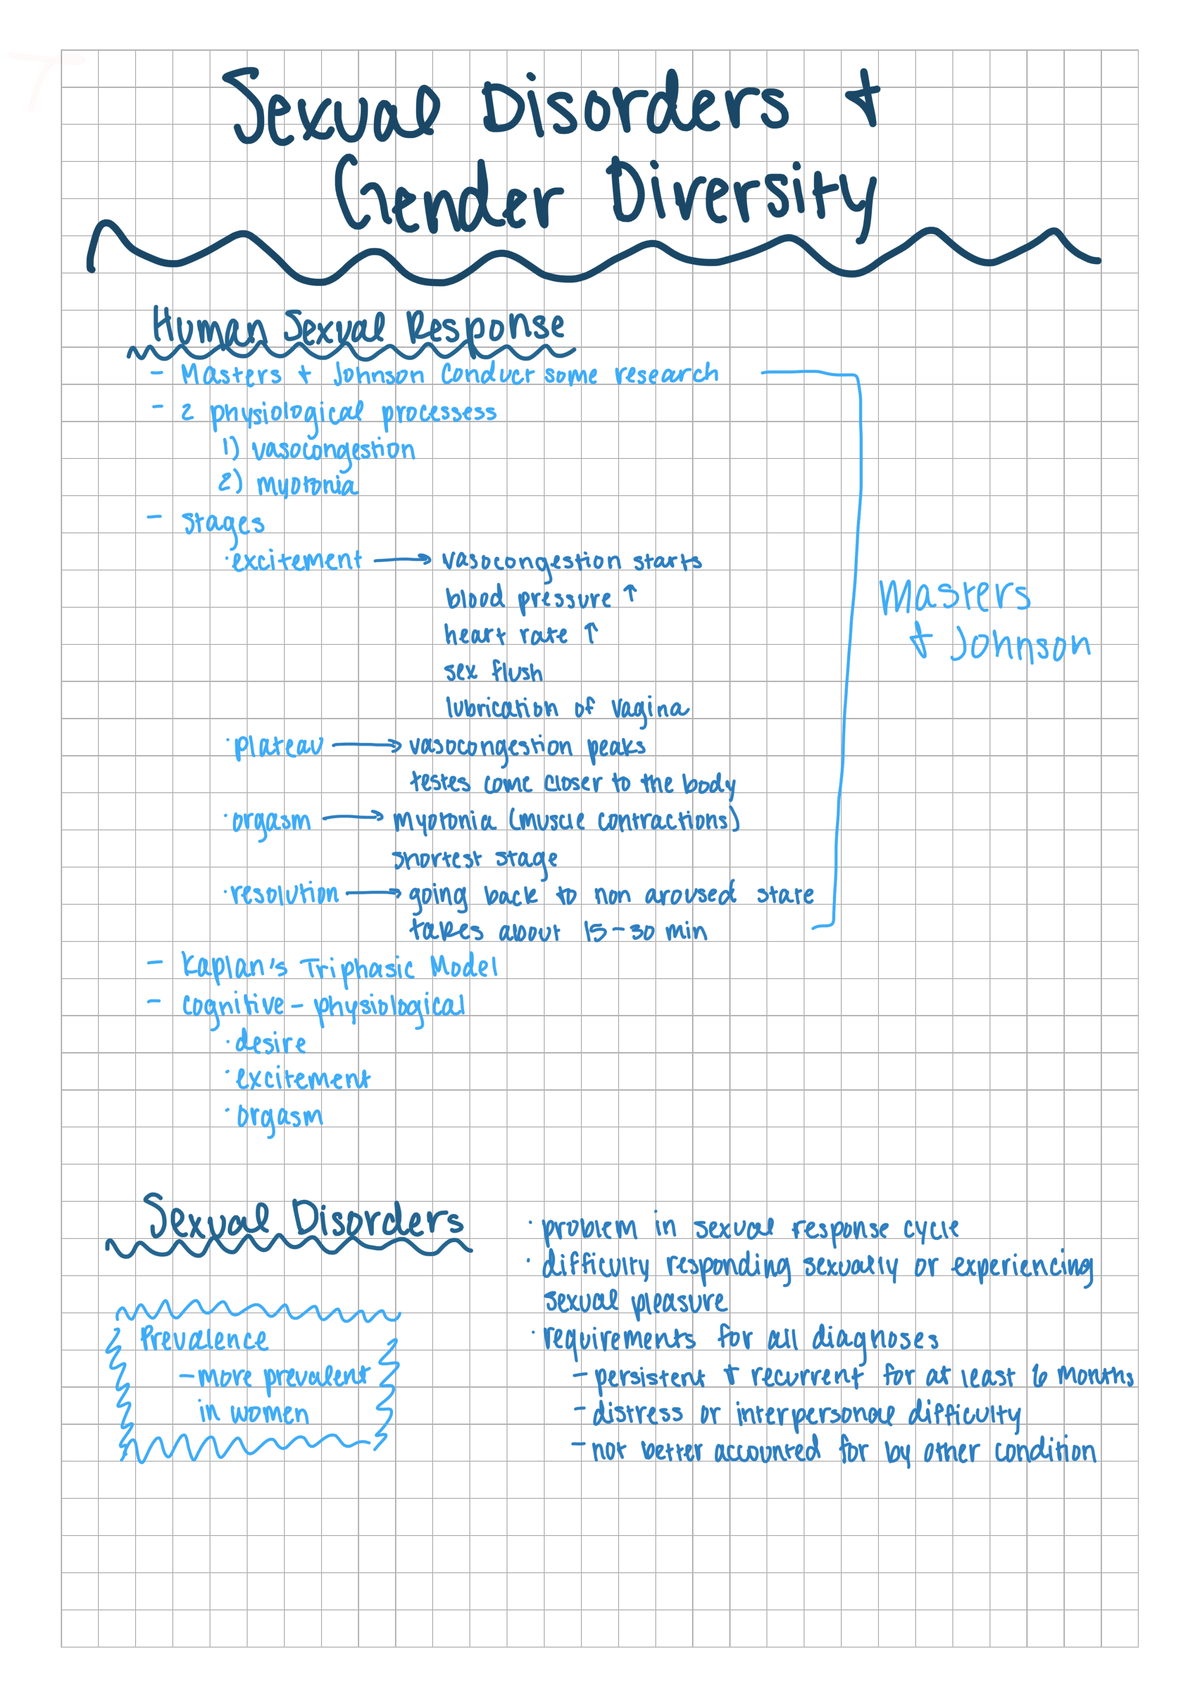 Sexual Disorders +
Gender Diversity
Human Sexual Response
- Masters + Johnson Conduct some research
- 2 physiological processess
1) vasocongestion
2) myotonia
- stages
· excitement → vasocongestion starts
blood pressure ↑
heart rate ↑
sex flush
lubrication of vagina
· plateau → vasocongestion peaks
testes come closer to the body
· orgasm → myotonia (muscle contractions)
shortest stage
· resolution → going back to non aroused state
takes about 15-30 min
Masters
+ Johnson
- Kaplan's Triphasic Model
- cognitive - physiological
· desire
· excitement
· orgasm
Sexual Disorders
· problem in sexual response cycle
· difficulty responding sexually or experiencing
sexual pleasure
· requirements for all diagnoses
- persistent + recurrent for at least 6 months
- distress or interpersonal difficulty
- not better accounted for by other condition
Prevalence
- more prevalent
in women